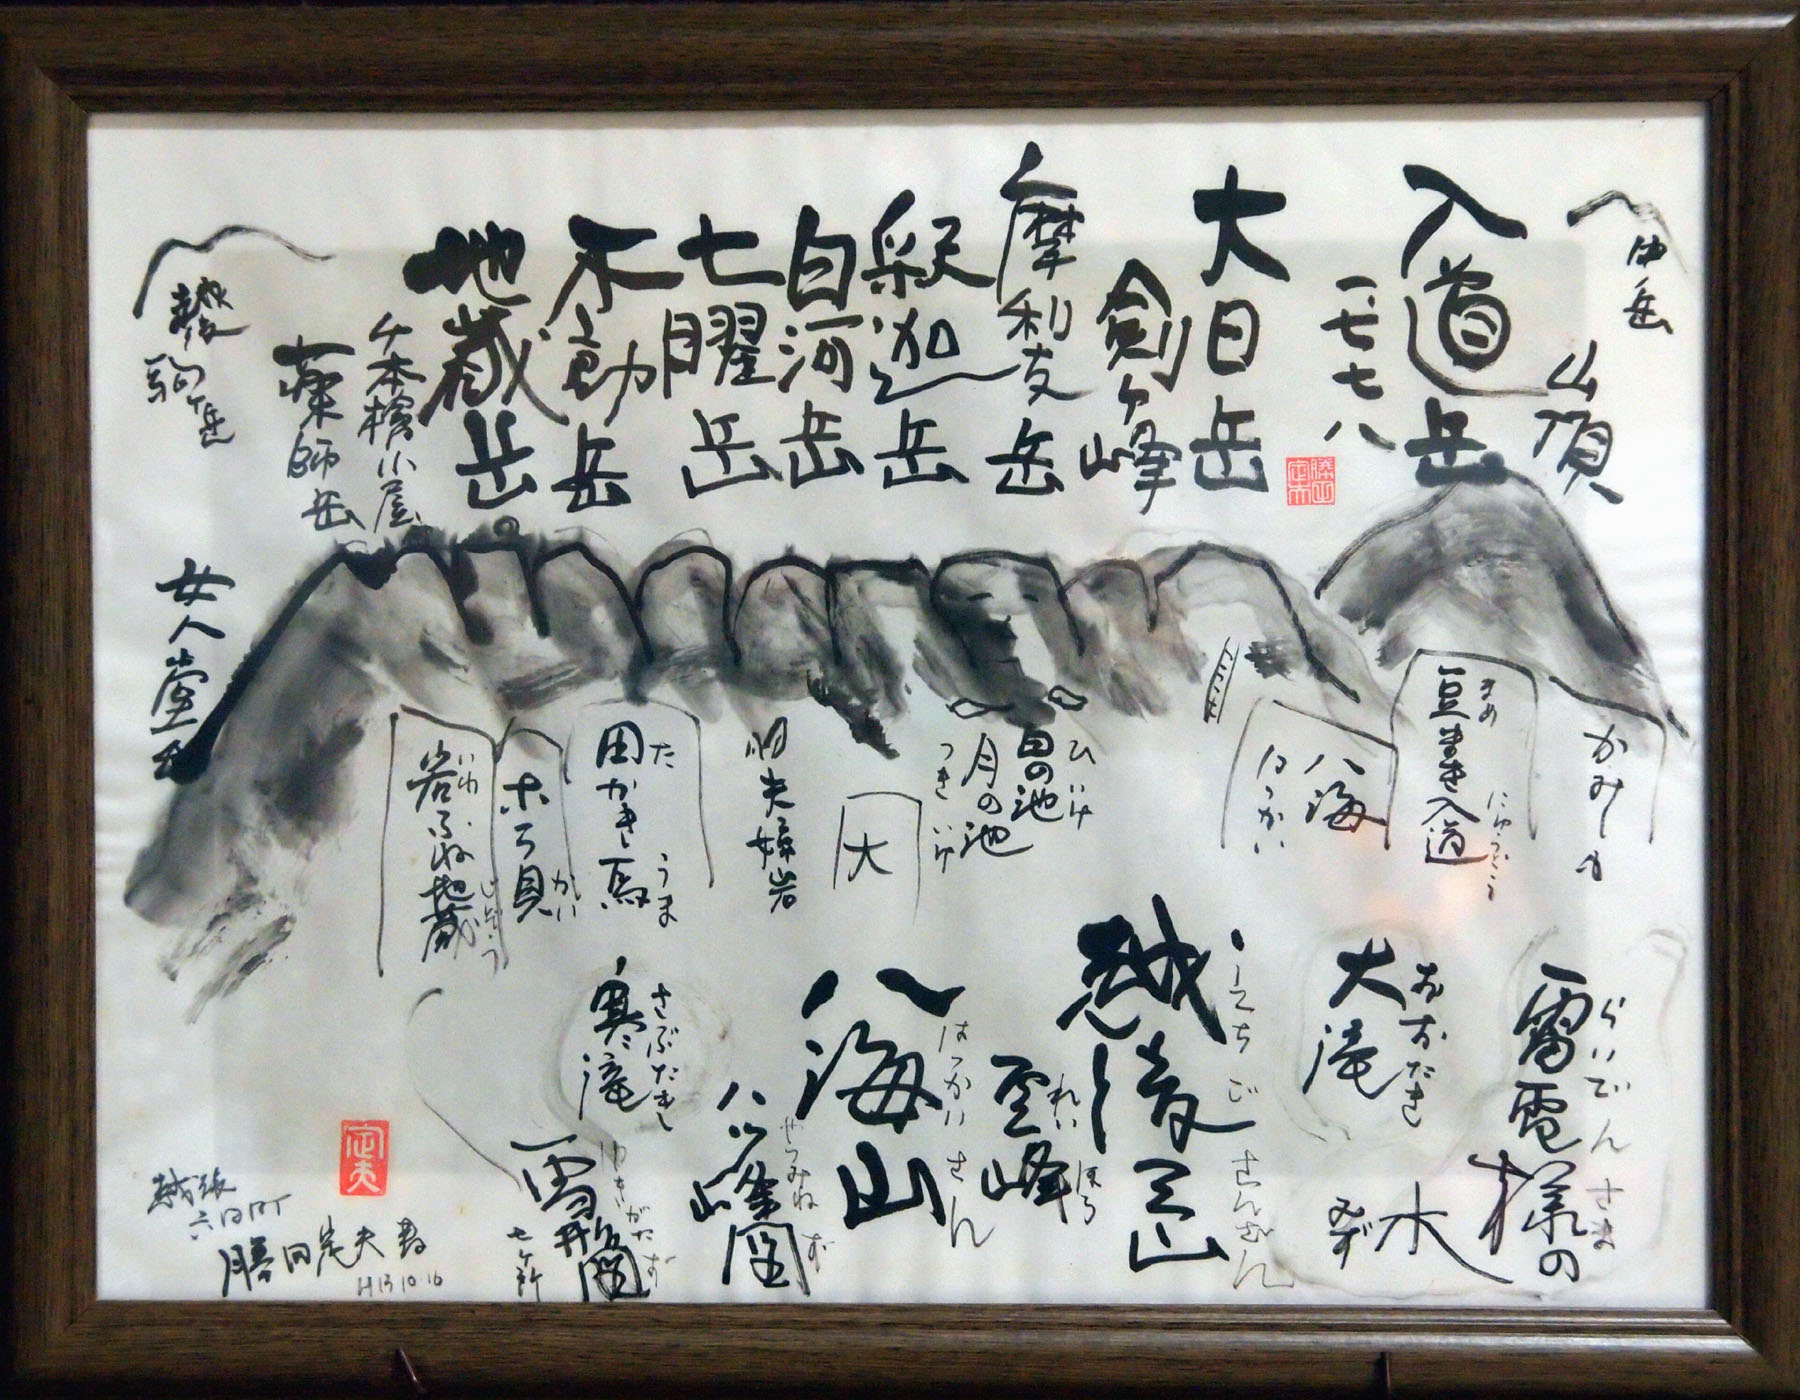 中岳
山頂
入道岳
一七七八
大日岳
剣ヶ峰
摩利支岳
釈迦岳
白河岳
七曜岳
不動岳
地蔵岳
千本檜小屋
薬師岳
越後
駒ヶ岳
女人堂
豆まき入道
まめ
にゅうどう
八海
はっかい
日の池
ひいけ
月の池
つきいけ
大
夫婦岩
田かき馬
た
うま
ホラ貝
がい
岩ふね地蔵
いわ
じぞう
雷電様の
らいでんさま
水
みず
大滝
おおたき
えちごさんざん
霊峰
れいほう
八海山
はっかいさん
八ツ峰図
やつみねず
寒滝
さぶたき
雪形図
ゆきがたず
七ヶ所
定夫
六日町
勝田定夫
H13 10 16